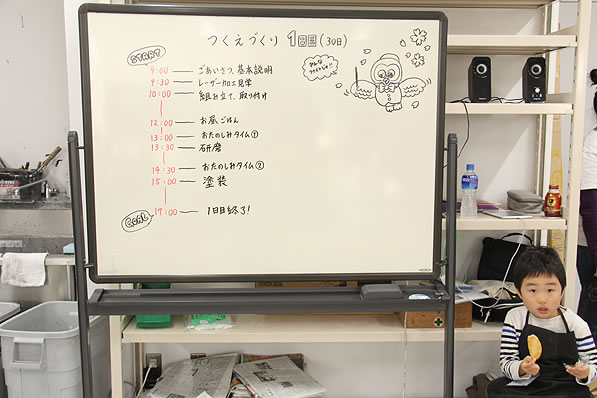 つくえづくり 1回目(30日)
START
9:00 ごあいさつ、基本説明
9:30 レーザー加工見学
10:00 組み立て、取り付け
12:00 お昼ごはん
13:00 おたのしみタイム①
13:30 研磨
14:30 おたのしみタイム②
15:00 塗装
GOAL 17:00 1日目終了!
みんな
ファイトじゃ!!